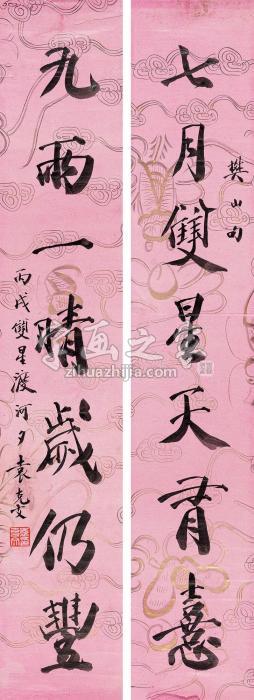 七月雙星天有意
樊山句
九雨一晴歲仍豐
丙戌雙星渡河夕 袁克文
字画之家
zihuazhijia.com